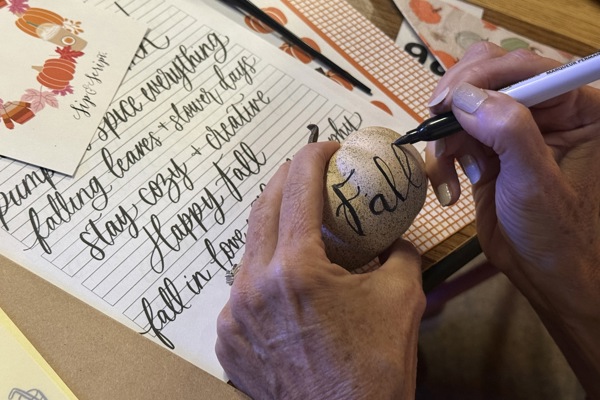 Sip & Script
spice everything
falling leaves + slower days
stay cozy + creative
Happy Fall
fall in love
Fall